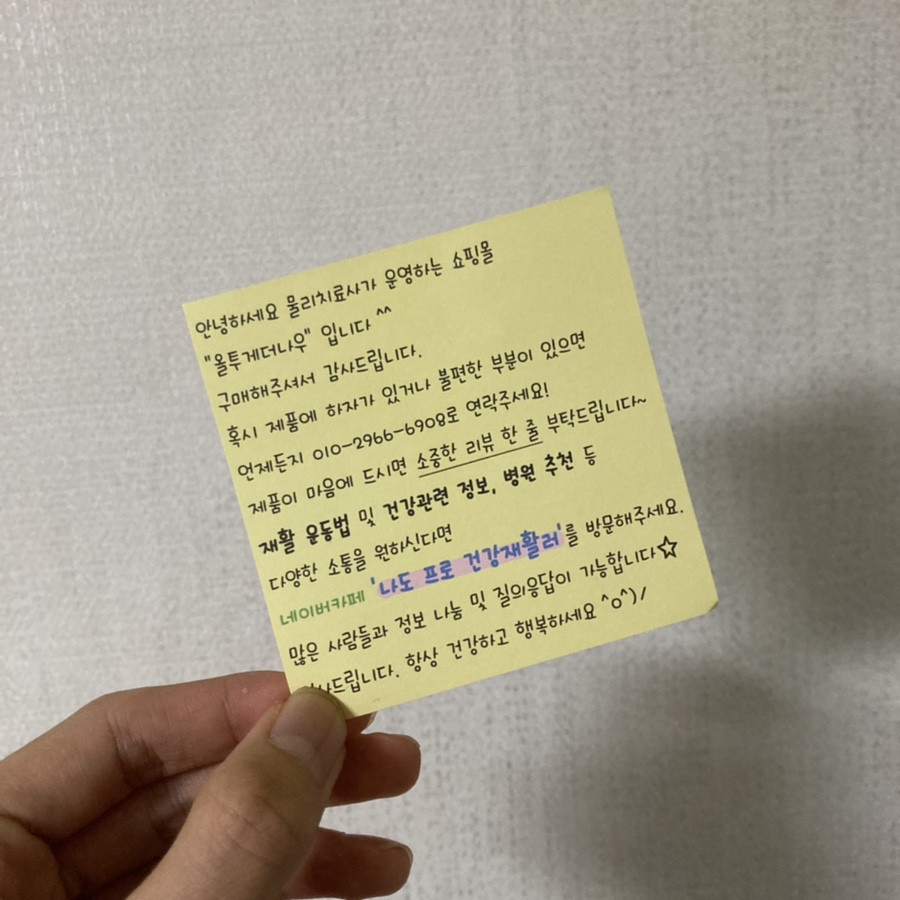 안녕하세요 물리치료사가 운영하는 쇼핑몰
"올투게더나우" 입니다 ^^
구매해주셔서 감사드립니다.
혹시 제품에 하자가 있거나 불편한 부분이 있으면
언제든지 010-2966-6908로 연락주세요!
제품이 마음에 드시면 소중한 리뷰 한 줄 부탁드립니다~
재활 운동법 및 건강관련 정보, 병원 추천 등
다양한 소통을 원하신다면
네이버카페 '나도 프로 건강재활러'를 방문해주세요.
많은 사람들과 정보 나눔 및 질의응답이 가능합니다☆
사드립니다. 항상 건강하고 행복하세요 ^o^)/